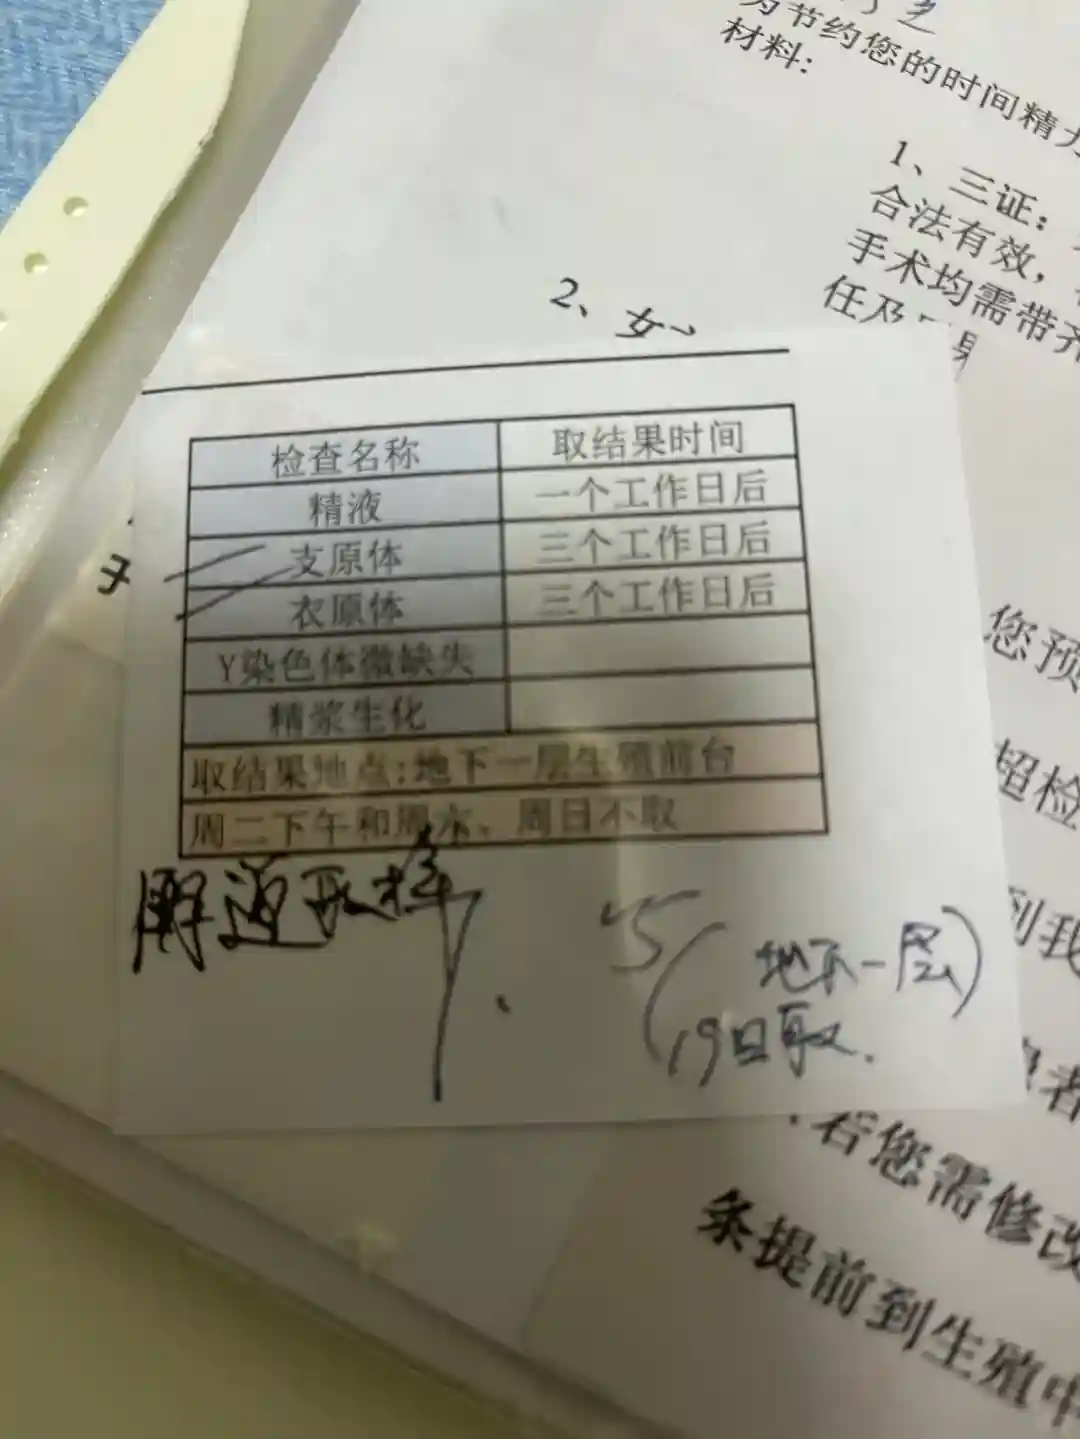 为节约您的时间精力
材料：
1、三证：
合法有效，
手术均需带齐
任及
2、女
检查名称 取结果时间
精液 一个工作日后
支原体 三个工作日后
衣原体 三个工作日后
Y染色体微缺失
精浆生化
取结果地点:地下一层生殖前台
周二下午和周六、周日不取
取样
(地下一层)
19日取.
您预
超检
到我
者
若您需修改
条提前到生殖中